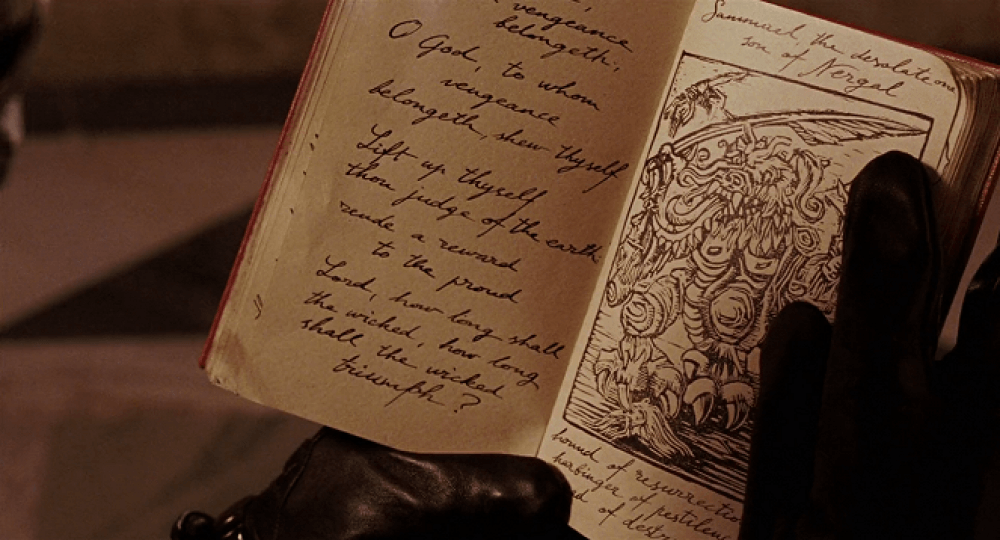 vengeance
belongeth,
O God, to whom
vengeance
belongeth, shew thyself
Lift up thyself
thou judge of the earth
rende a reward
to the proud
Lord, how long shall
the wicked, how long
shall the wicked
triumph?
Sammael, the desolate one
son of Nergal
hound of resurrectio
harbinger of pestilen
of destr